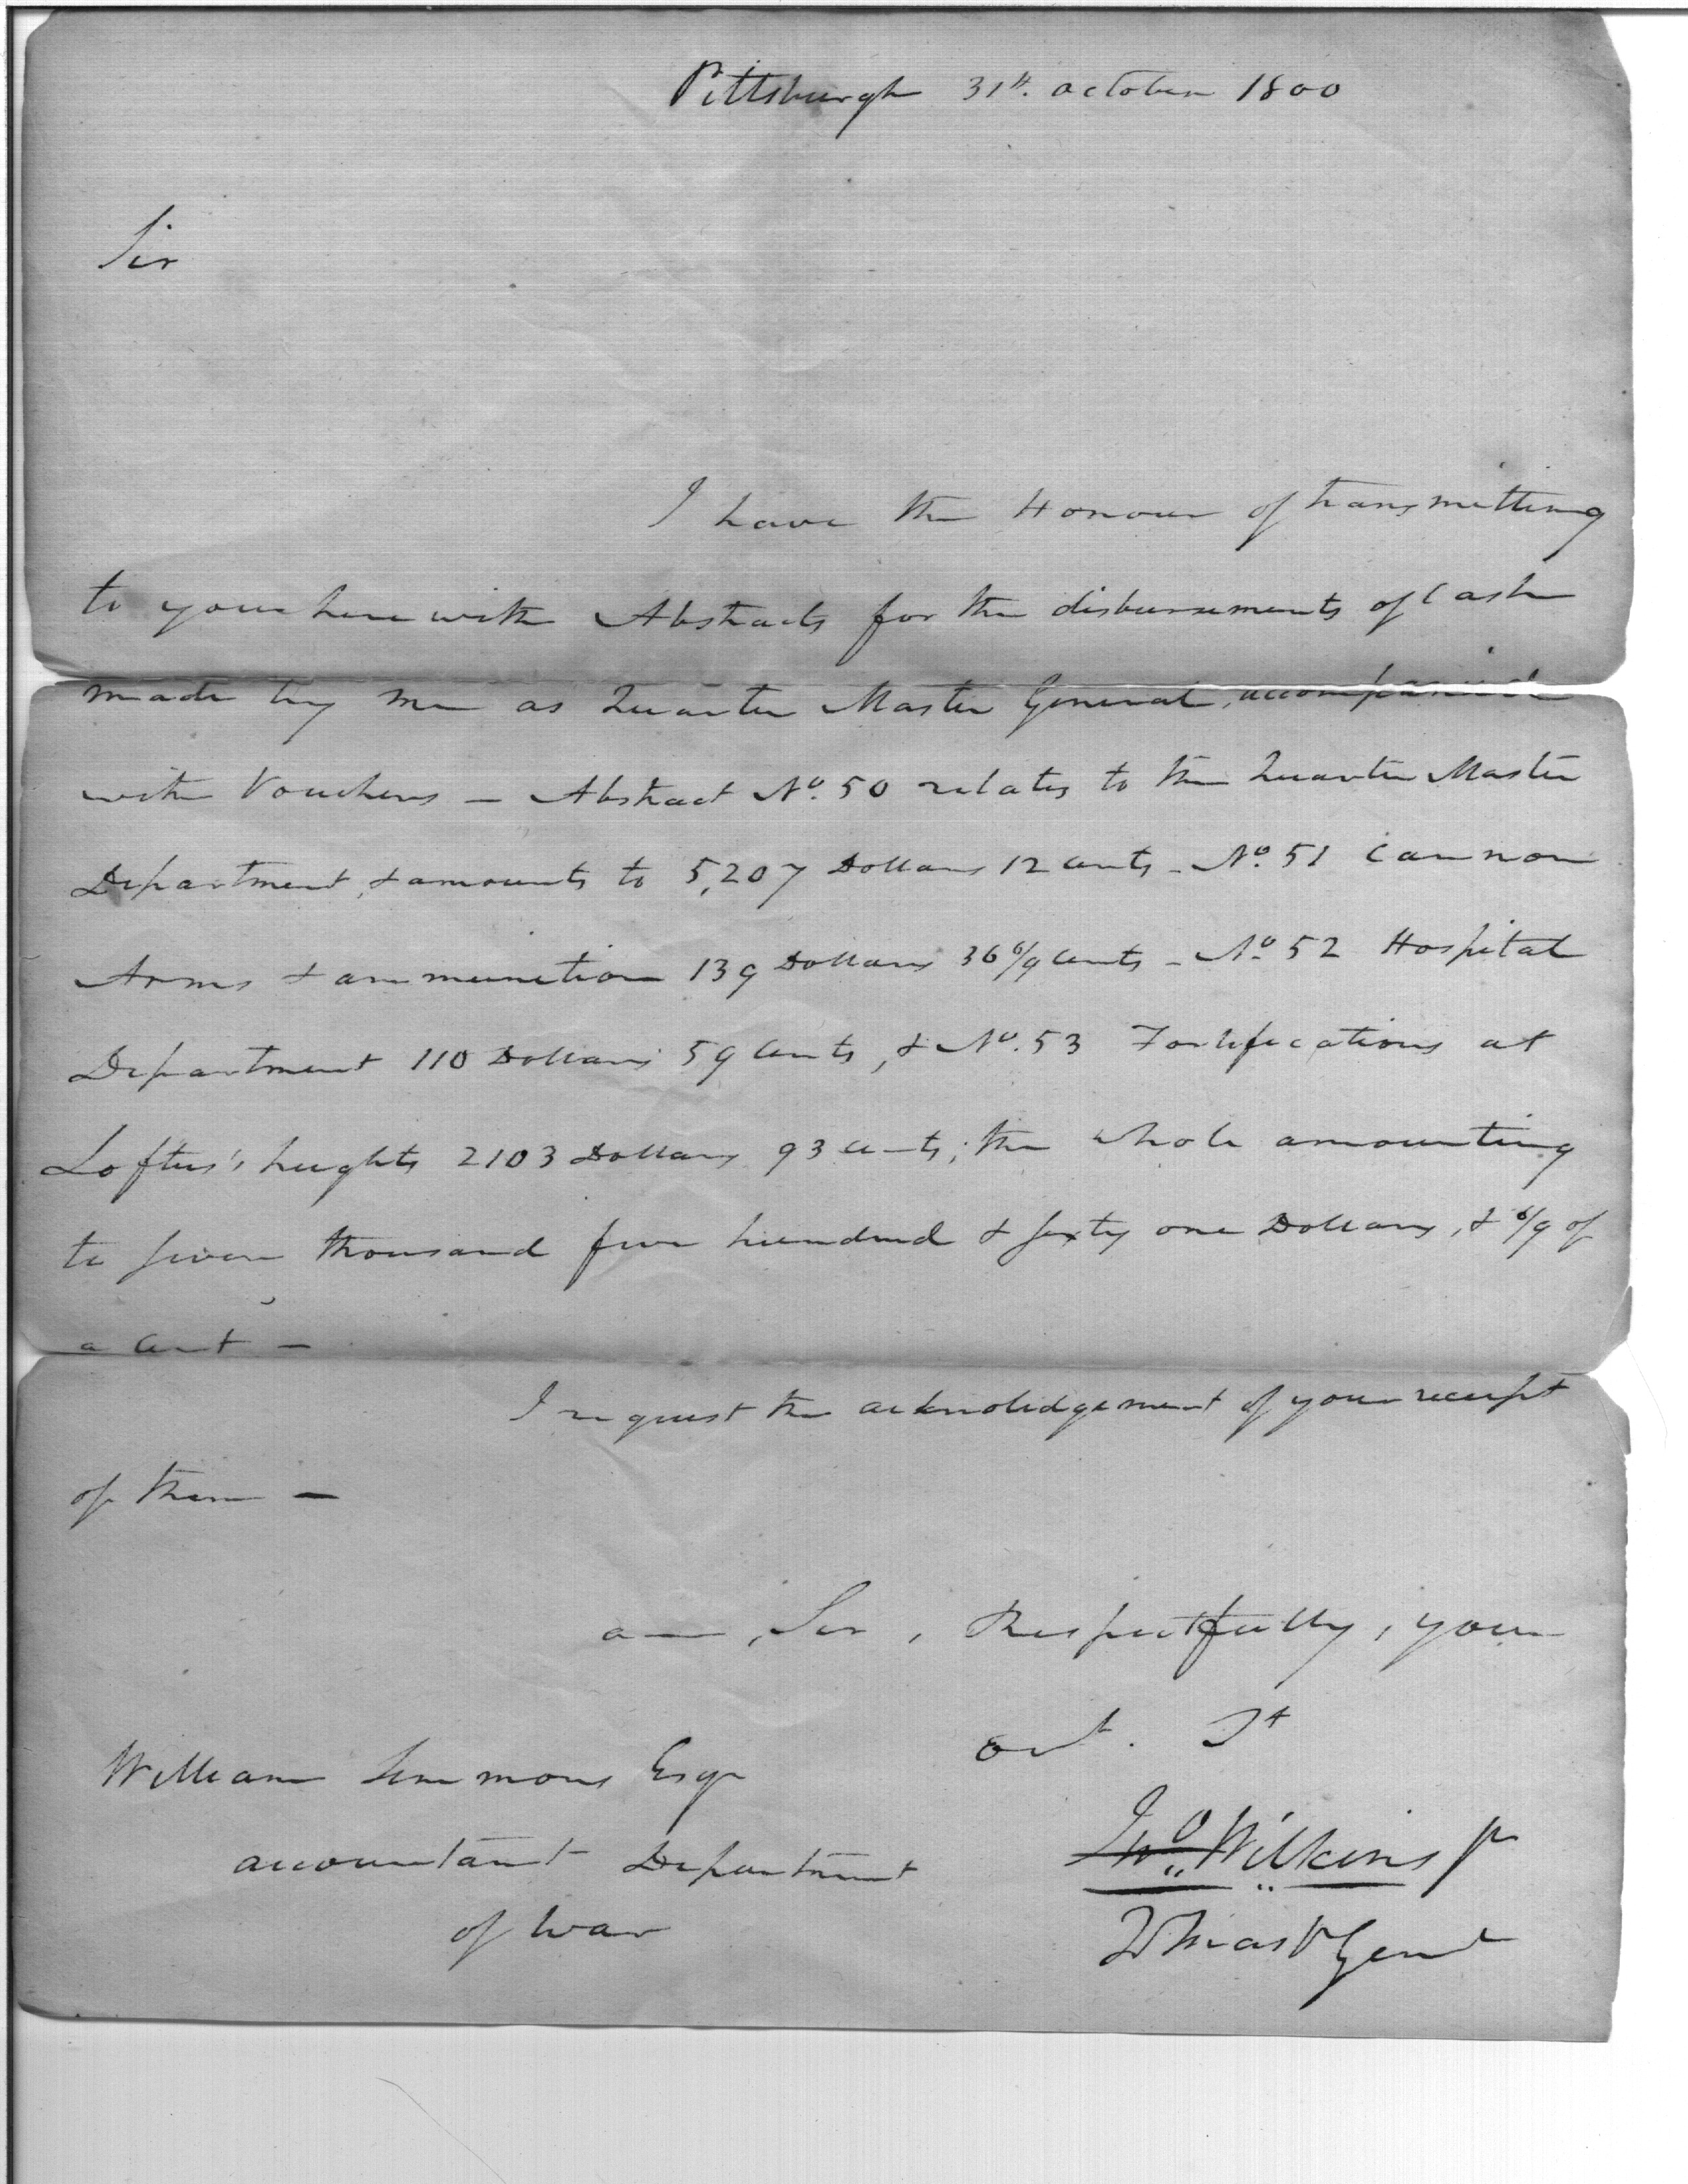 Pittsburgh 31st. october 1800
Sir
I have the Honour of transmitting
to your herewith Abstracts for the disbursements of Cash
made by me as Quarter Master General, accompanied
with Vouchers — Abstract No. 50 relates to the Quarter Master
Department, & amounts to 5,207 Dollars 12 Cents - No. 51 Cannon
Arms & ammunition 139 Dollars 36 6/9 Cents - No. 52 Hospital
Department 110 Dollars 59 Cents, & No. 53 Fortifications at
Loftus's heights 2103 Dollars 93 Cents; the whole amounting
to seven thousand five hundred & sixty one Dollars, & 6/9 of
a Cent —
I request the acknolidgement of your receipt
of them —
am, Sir, Respectfully, your
obt. St
William Simmons Esqr
accountant Department
of War
Jno Wilkins Jr
Q Mastr Genl